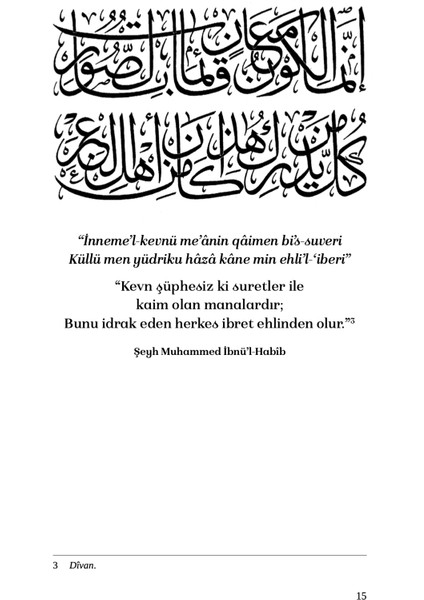 إنَّمَا الكَوْنُ مَعَانٍ قَائِمَاتٌ بِالصُّوَرْ
كُلُّ مَنْ يُدْرِكُ هٰذَا كَانَ مِنْ أَهْلِ العِبَرْ
“İnneme’l-kevnü me’ânin qâimen bi’s-suveri
Küllü men yüdriku hâzâ kâne min ehli’l-‘iberi”
“Kevn şüphesiz ki suretler ile
kaim olan manalardır;
Bunu idrak eden herkes ibret ehlinden olur.”3
Şeyh Muhammed İbnü’l-Habîb
3 Dîvan.
15